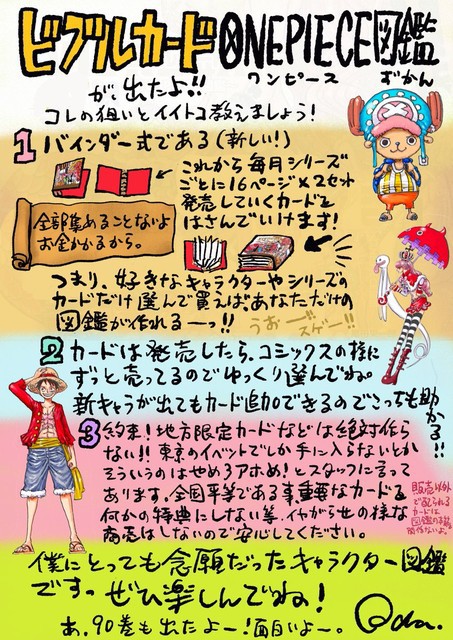 ビブルカード ONEPIECE図鑑
ワンピース ずかん
が、出たよ!!
コレの狙いとイイトコ教えましょう!
1 バインダー式である(新しい!)
これから毎月シリーズ
ごとに16ページ×2セット
発売していくカードを
はさんでいけます!
全部集めることないよ
お金かかるから。
つまり、好きなキャラクターやシリーズの
カードだけ選んで買えば、あなただけの
図鑑が作れるーーっ!!
うおーースゲー!!
2 カードは発売したら、コミックスの様に
ずっと売ってるのでゆっくり選んでね。
新キャラが出てもカード追加できるのでこっちも助かる!!
3 約束!地方限定カードなどは絶対作ら
ない!!東京のイベントでしか手に入らないとか
そういうのはやめろアホめ!とスタッフに言って
あります。全国平等である事重要なカードを
何かの特典にしない等、イヤがらせの様な
商売はしないので安心してください。
販売以外
で配られる
カードは
図鑑の本編と
関係ないよ。
僕にとっても念願だったキャラクター図鑑
ですっ ぜひ楽しんでね!
あ、90巻も出たよー!面白いよー。
Oda.